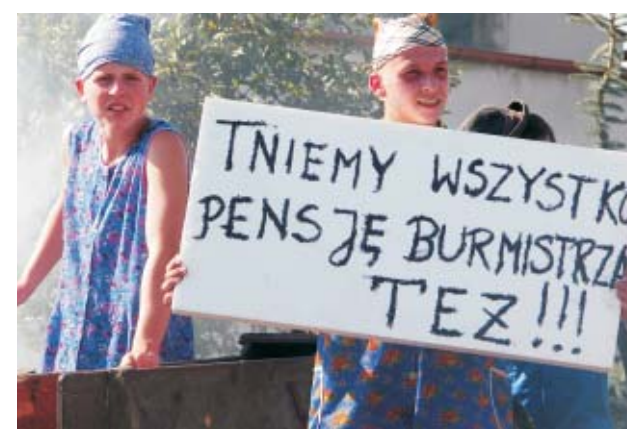 TNIEMY WSZYSTKO
PENSJĘ BURMISTRZA
TEŻ!!!